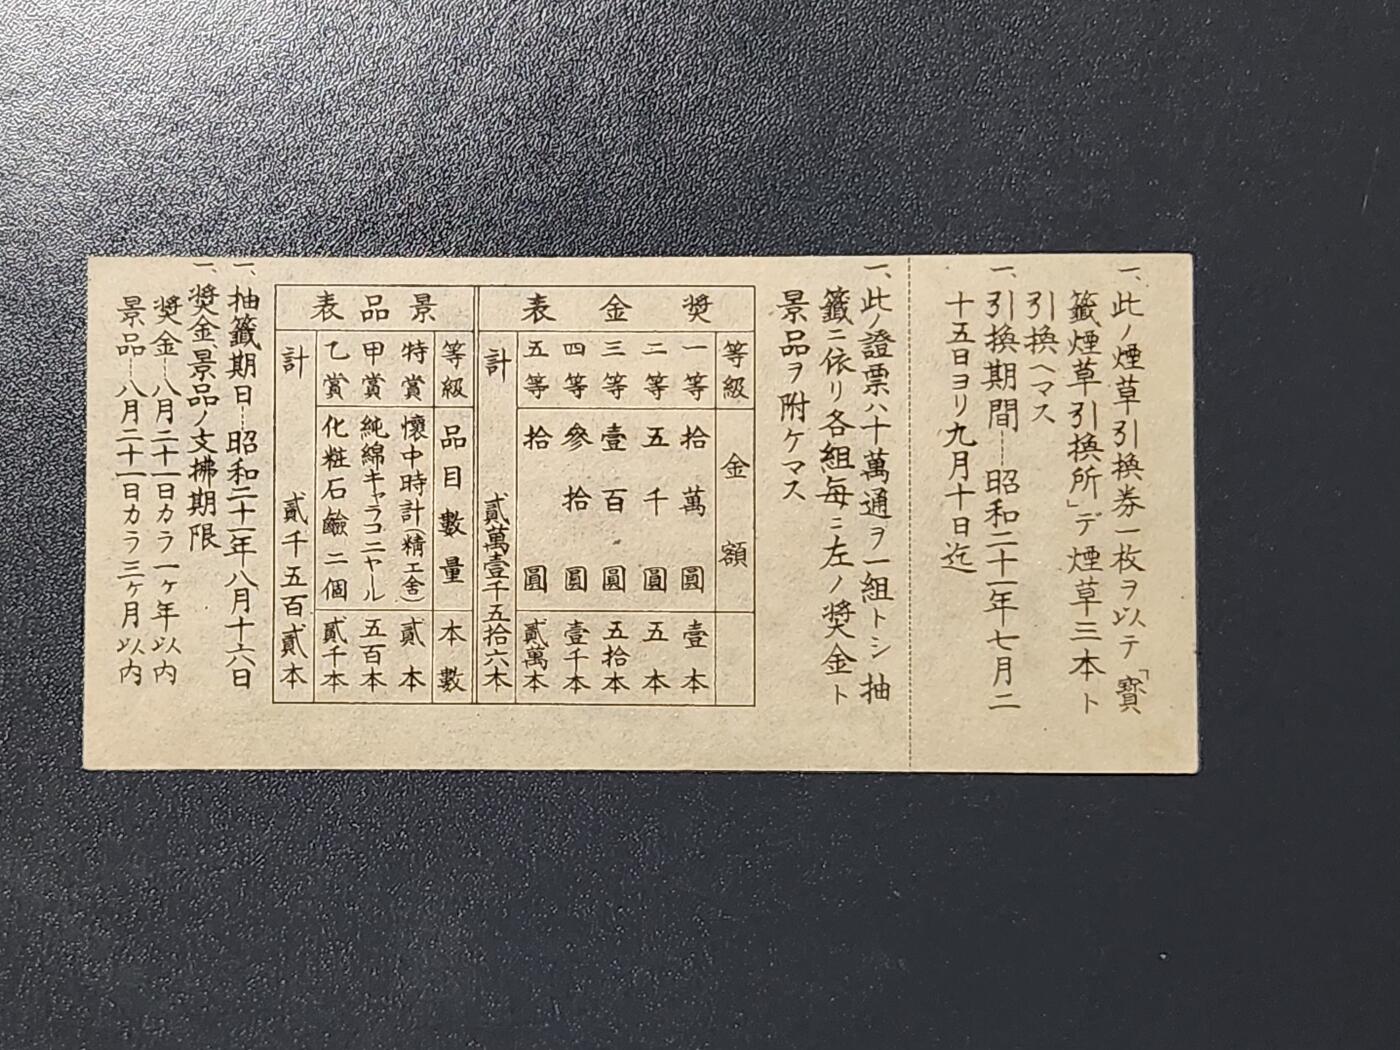 一、此ノ煙草引換券一枚ヲ以テ「寳
籤煙草引換所」デ煙草三本ト
引換ヘマス
一、引換期間―昭和二十一年七月二
十五日ヨリ九月十日迄
一、此ノ證票ハ十萬通ヲ一組トシ抽
籤ニ依リ各組毎ニ左ノ奬金ト
景品ヲ附ケマス
奬金表
等級 金額
一等 拾萬圓 壹本
二等 五千圓 五本
三等 壹百圓 五拾本
四等 參拾圓 壹千本
五等 拾圓 貳萬本
計 貳萬壹千五拾六本
景品表
等級 品目數量 本數
特賞 懷中時計(精工舍) 貳本
甲賞 純綿キャラコ二ヤール 五百本
乙賞 化粧石鹼二個 貳千本
計 貳千五百貳本
一、抽籤期日―昭和二十一年八月十六日
一、奬金、景品ノ支拂期限
奬金―八月二十一日カラ一ヶ年以内
景品―八月二十一日カラ三ヶ月以内